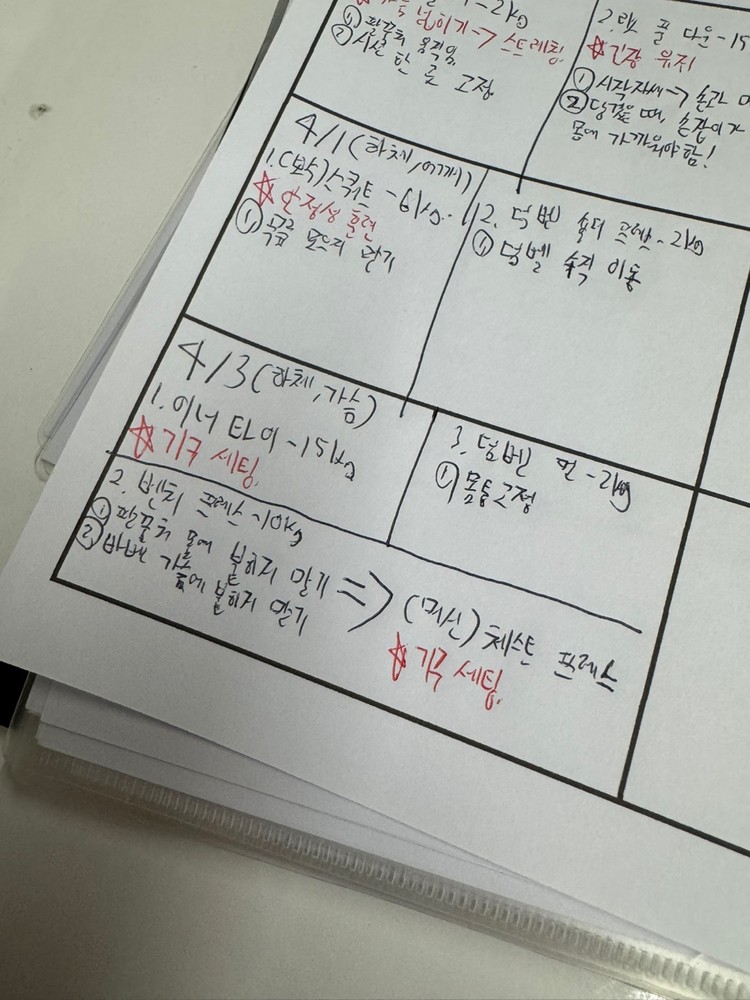 2kg
넘이기 -> 스트레칭
① 팔꿈치 움직임
② 시선 한 곳 고정
풀 다운 - 15
☆ 긴장 유지
① 시작자세 -> 손과
② 당겼을 때, 손잡이가
몸에 가까워야함!
4/1 (하체, 어깨)
1. 스쿼트 - 6kg
☆ 안정성 훈련
① 무릎 모으지 말기
2. 덤벨 숄더 프레스 - 2kg
① 덤벨 수직 이동
4/3 (하체, 가슴)
1. 이너 타이 - 15kg
☆ 기구 세팅
2. 벤치 프레스 - 10kg
① 팔꿈치 몸에 붙히지 말기
② 바벨 가슴에 붙히지 말기
=> (머신) 체스트 프레스
☆ 기구 세팅
3. 덤벨 - 2kg
① 몸통고정